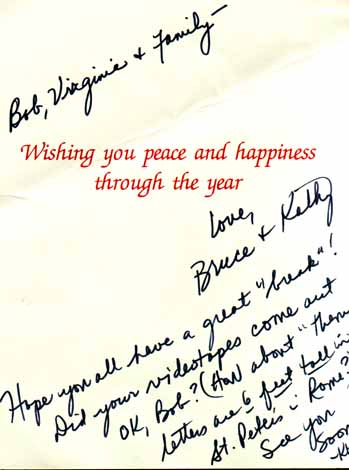 Bob, Virginia & Family—
Wishing you peace and happiness
through the year
Love,
Bruce & Kathy
Hope you all have a great "break"!
Did your videotapes come out
OK, Bob? (How about "them
letters are 6 feet tall in
St. Peter's in Rome?"
See you
soon